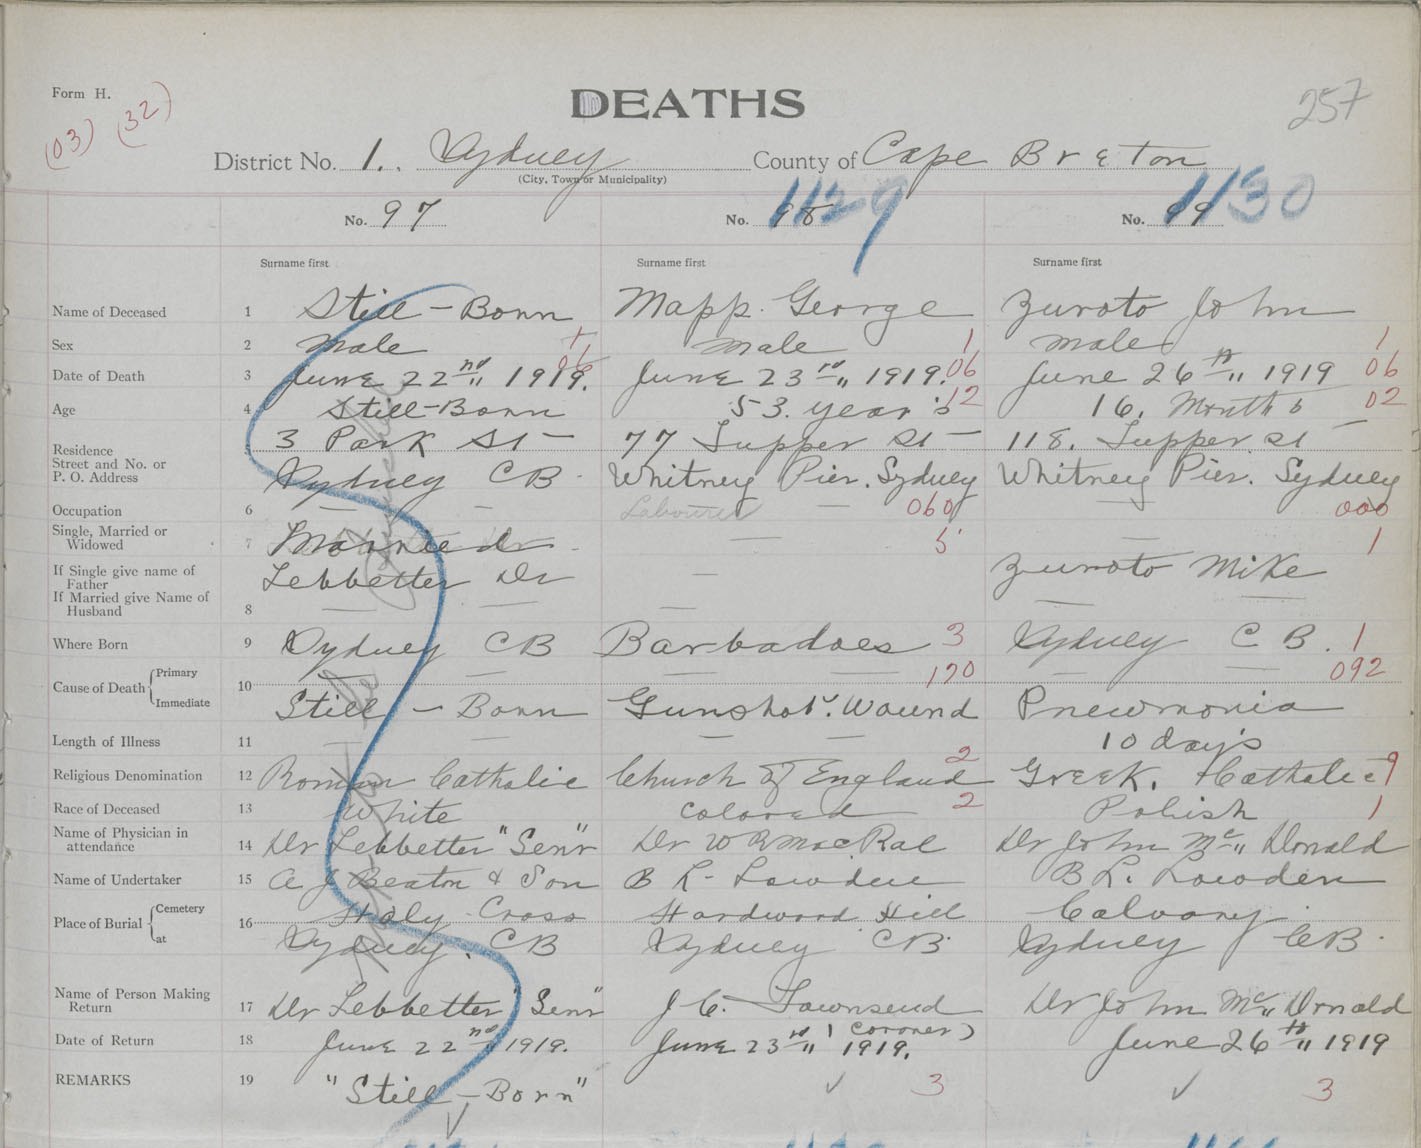 Form H.
DEATHS
257
(03) (32)
District No. 1. Sydney County of Cape Breton
(City, Town or Municipality)
No. 97 No. 98 1129 No. 99 1130
Surname first Surname first Surname first
Name of Deceased 1 Still-Born Mapp. George Zuroto John
Sex 2 Male Male 1 Male 1
Date of Death 3 June 22nd 1919. 06 June 23rd 1919. 06 June 26th 1919 06
Age 4 Still-Born 53. years 12 16. Months 02
Residence 5 3 Park St – 77 Tupper St – 118. Tupper St –
Street and No. or
P. O. Address Sydney CB Whitney Pier. Sydney Whitney Pier. Sydney
Occupation 6 – – Labourer – 060 – 000
Single, Married or
Widowed 7 — 5 — 1
If Single give name of
Father Lebbetter Dr – Zuroto Mike
If Married give Name of
Husband 8 — — — — —
Where Born 9 Sydney CB Barbadoes 3 Sydney C B. 1
Cause of Death Primary 10 — — — — 170 — — 092
Immediate Still – Born Gunshot. Wound Pneumonia
Length of Illness 11 — — — — 10 days
Religious Denomination 12 Roman Catholic Church of England 2 Greek. Catholic 9
Race of Deceased 13 White Colored 2 Polish 1
Name of Physician in
attendance 14 Dr Lebbetter "Senr" Dr W R MacRae Dr John Mc" Donald
Name of Undertaker 15 A J Beaton & Son B L- Lowden B L. Lowden
Place of Burial Cemetery 16 Holy Cross Hardwood Hill Calvary
at Sydney. CB Sydney CB Sydney CB.
Name of Person Making
Return 17 Dr Lebbetter "Senr" J C. Townsend Dr John Mc" Donald
(Coroner)
Date of Return 18 June 22nd 1919. June 23rd 1919. June 26th 1919
REMARKS 19 "Still–Born" ✓ 3 ✓ 3